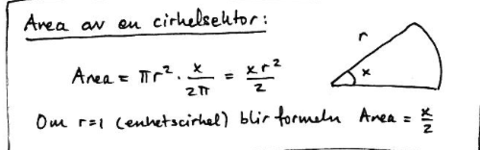 Area av en cirkelsektor:
r
Area = πr² · x/2π = xr²/2
x
Om r=1 (enhetscirkel) blir formeln Area = x/2